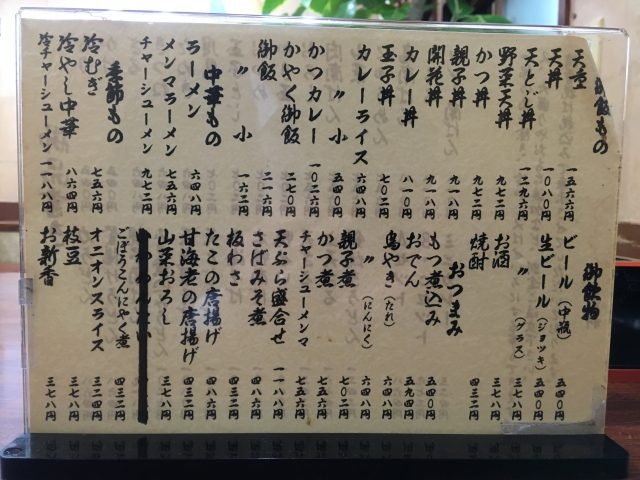 御飯もの
天重 一五六六円
天丼 一〇八〇円
天とじ丼 一二九六円
野菜天丼 九七二円
かつ丼 九七二円
親子丼 九一八円
開花丼 九一八円
カレー丼 八一〇円
玉子丼 七〇二円
カレーライス 六四八円
〃 小 五四〇円
かつカレー 一〇二六円
かやく御飯 二七〇円
御飯 二一六円
〃 小 一六二円
中華もの
ラーメン 六四八円
メンマラーメン 七五六円
チャーシューメン 九七二円
季節もの
冷むぎ 七五六円
冷やし中華 八六四円
冷チャーシューメン 一一八八円
御飲物
ビール(中瓶) 五四〇円
生ビール(ジョッキ) 五四〇円
〃(グラス) 三七八円
お酒 三七八円
焼酎 四三二円
おつまみ
もつ煮込み 五四〇円
おでん 五九四円
鳥やき(たれ) 六四八円
〃(にんにく) 六四八円
親子煮 七〇二円
かつ煮 七五六円
チャーシューメンマ 七五六円
天ぷら盛合せ 一一八八円
さばみそ煮 六四八円
板わさ 四三二円
たこの唐揚げ 四八六円
甘海老の唐揚げ 四三二円
山菜おろし 三七八円
ごぼうこんにゃく煮 四三二円
オニオンスライス 三二四円
枝豆 三七八円
お新香 三七八円